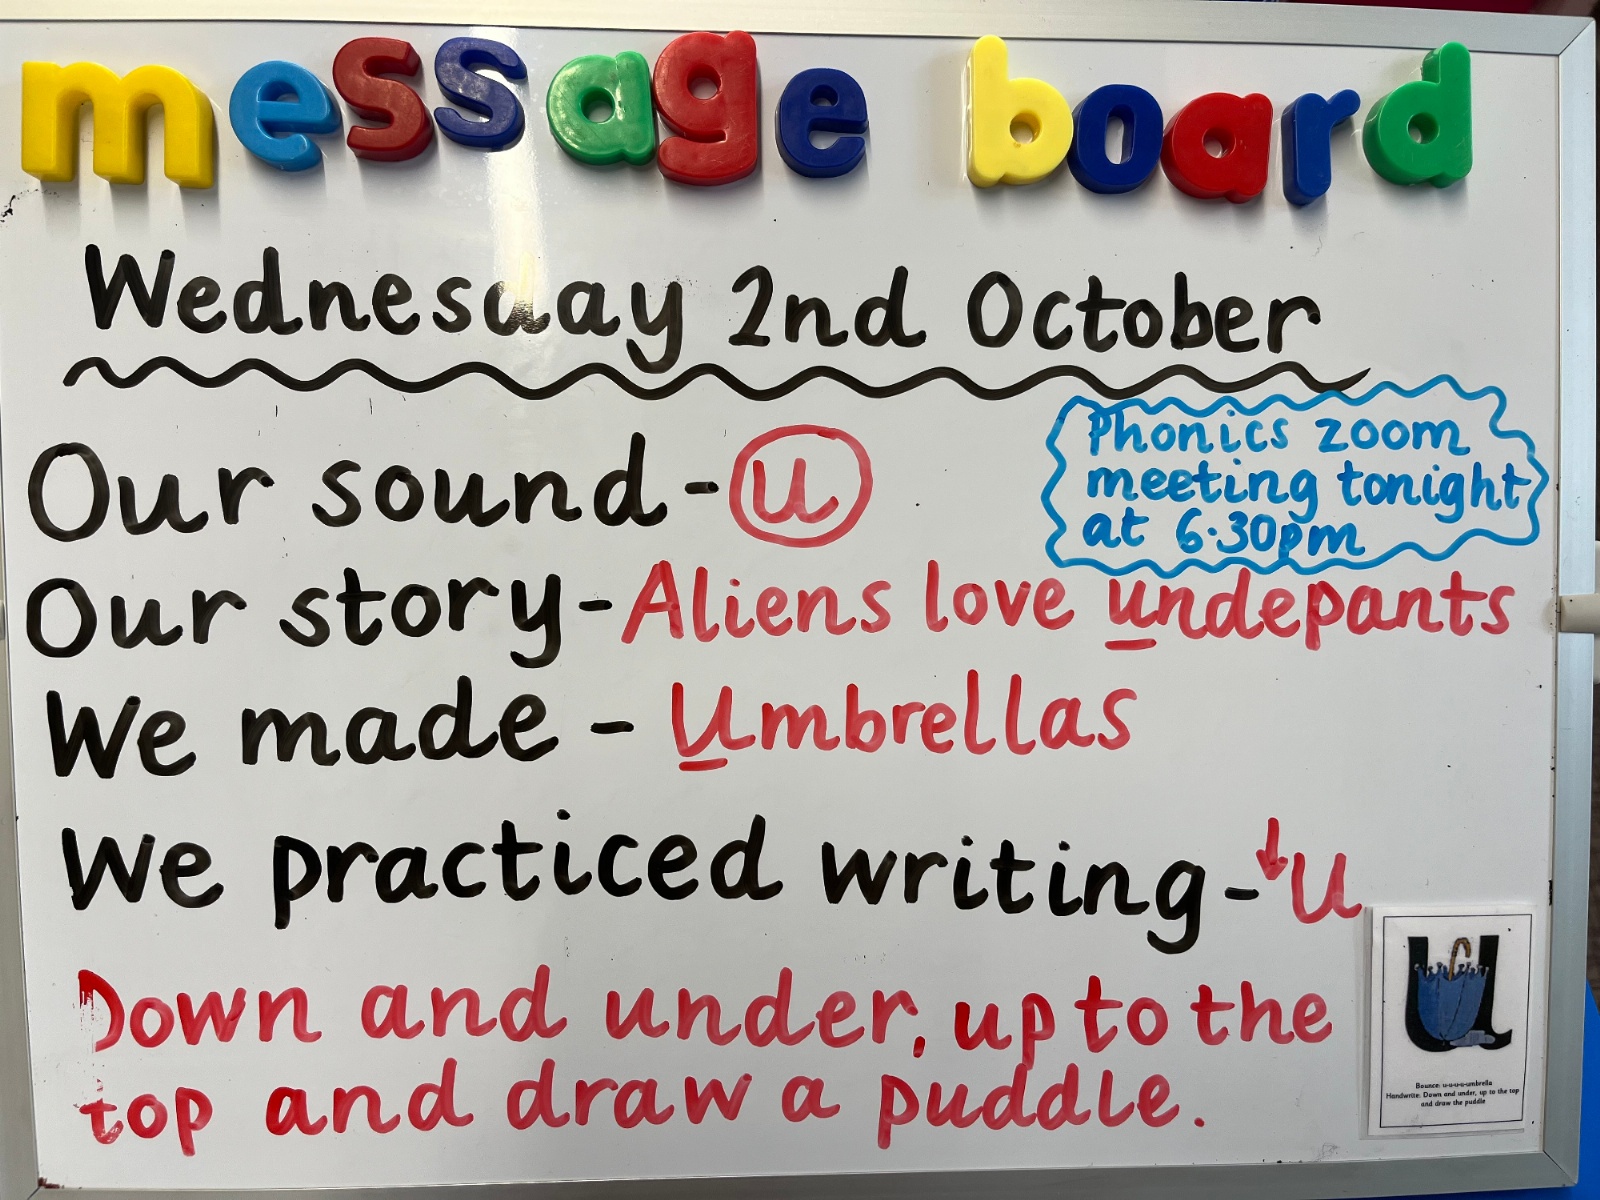 message board
Wednesday 2nd October
Our sound - u
Phonics zoom
meeting tonight
at 6.30pm
Our story - Aliens love undepants
We made - Umbrellas
We practiced writing - u
Down and under, up to the
top and draw a puddle.
u
Bounce: u-u-u-u-umbrella
Handwrite: Down and under, up to the top
and draw the puddle